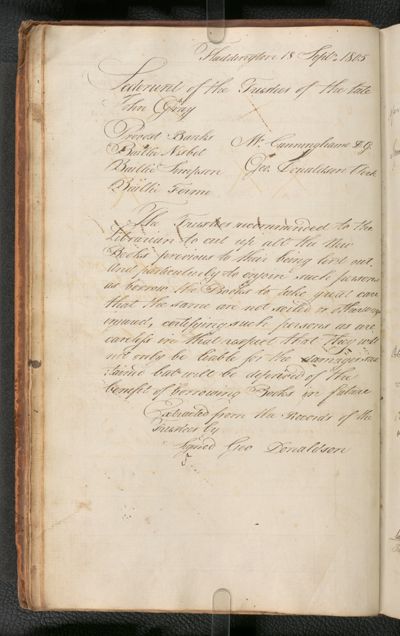 Haddington 18 Septr. 1805
Sederunt of the Trustees of the late
John Gray
Provost Banks
Mr. Cunninghame D.G.
Baillie Nisbet
Geo. Donaldson Clerk
Baillie Simpson
Baillie Ferme
The Trustees recommended to the
Librarian to cut up all the new
Books previous to their being lent out
And particularly to enjoin such persons
as borrow the Books to take great care
that the same are not soiled or otherways
injured, certifying such persons as are
careless in that respect that they will
not only be liable for the damages sus
tained but will be deprived of the
benefit of borrowing Books in future
Extracted from the Records of the
Trustees by
Signed Geo Donaldson